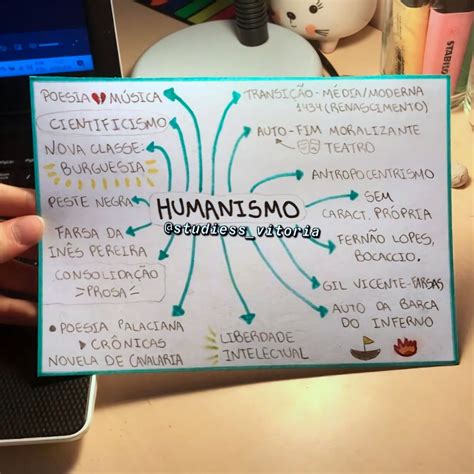 POESIA MÚSICA
CIENTIFICISMO
NOVA CLASSE:
BURGUESIA
PESTE NEGRA
FARSA DA
INÊS PEREIRA
CONSOLIDAÇÃO
PROSA
• POESIA PALACIANA
CRÔNICAS
NOVELA DE CAVALARIA
HUMANISMO
@studiess_vitoria
LIBERDADE
INTELECTUAL
TRANSIÇÃO - MÉDIA/MODERNA
1434 (RENASCIMENTO)
AUTO - FIM MORALIZANTE
TEATRO
ANTROPOCENTRISMO
SEM
CARACT. PRÓPRIA
FERNÃO LOPES,
BOCACCIO.
GIL VICENTE - FARSAS
AUTO DA BARCA
DO INFERNO
STABILO